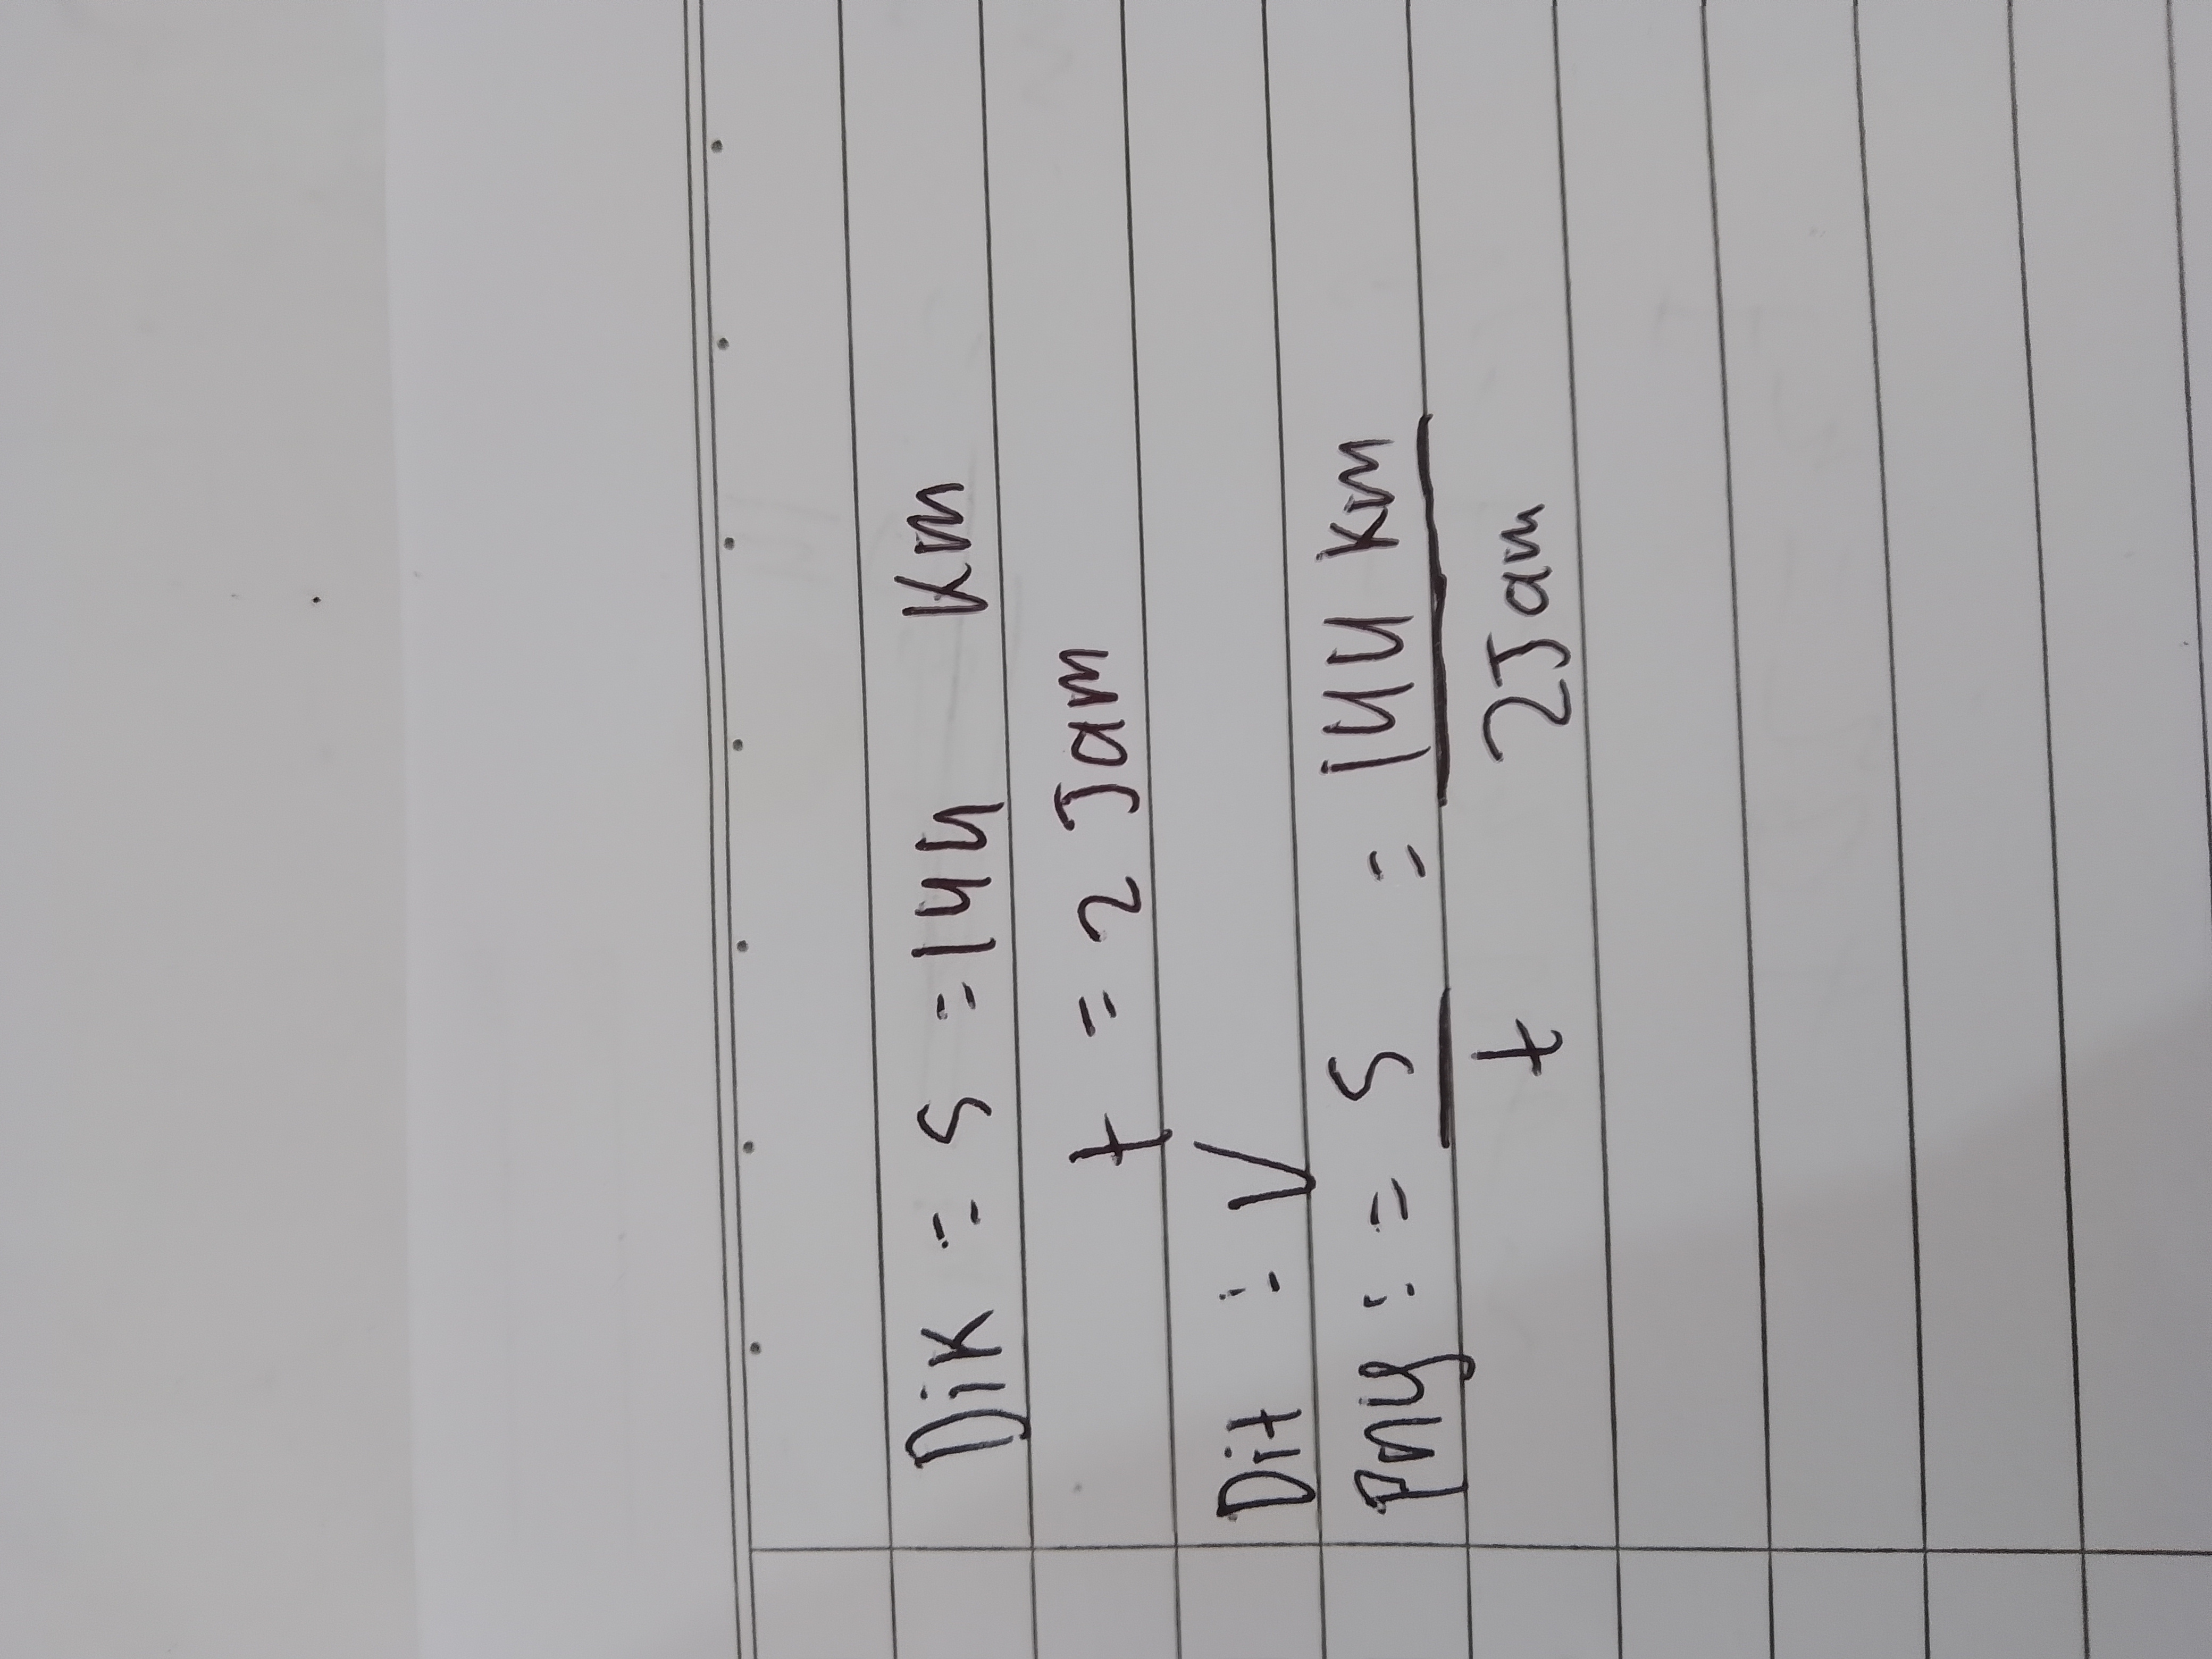 Dik : s = 144 Km
t = 2 Jam
Dit : V
Pny : = s = 144 km
t 2 Jam